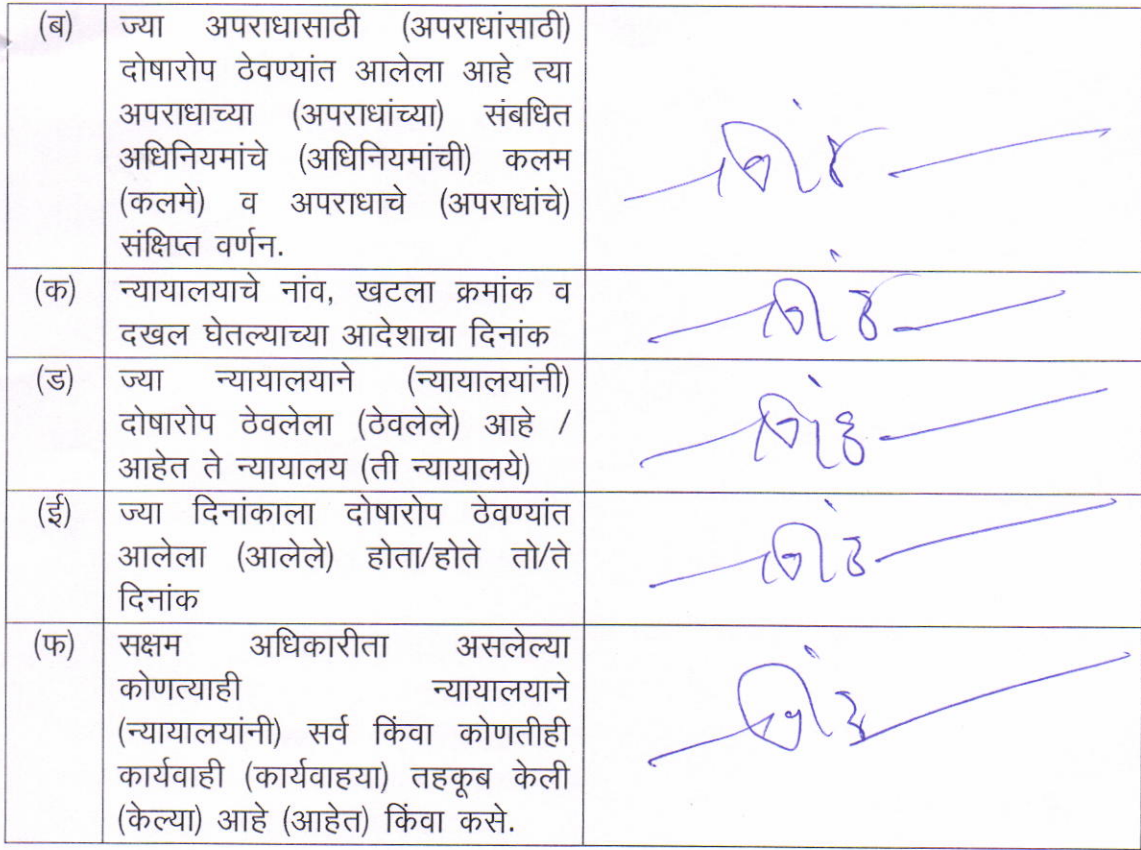 (ब) ज्या अपराधासाठी (अपराधांसाठी)
दोषारोप ठेवण्यांत आलेला आहे त्या
अपराधाच्या (अपराधांच्या) संबधित
अधिनियमांचे (अधिनियमांची) कलम
(कलमे) व अपराधाचे (अपराधांचे)
संक्षिप्त वर्णन.
(क) न्यायालयाचे नांव, खटला क्रमांक व
दखल घेतल्याच्या आदेशाचा दिनांक
(ड) ज्या न्यायालयाने (न्यायालयांनी)
दोषारोप ठेवलेला (ठेवलेले) आहे /
आहेत ते न्यायालय (ती न्यायालये)
(ई) ज्या दिनांकाला दोषारोप ठेवण्यांत
आलेला (आलेले) होता/होते तो/ते
दिनांक
(फ) सक्षम अधिकारीता असलेल्या
कोणत्याही न्यायालयाने
(न्यायालयांनी) सर्व किंवा कोणतीही
कार्यवाही (कार्यवाहया) तहकूब केली
(केल्या) आहे (आहेत) किंवा कसे.